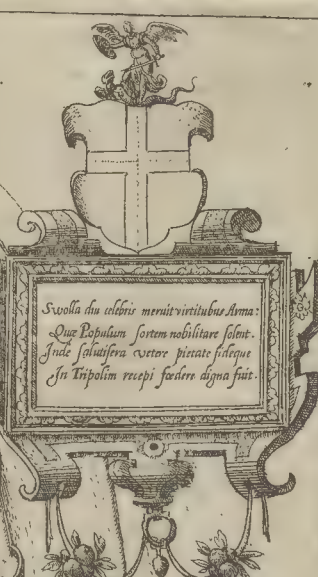 Swolla diu celebris meruit virtitubus Arma:
Quæ Populum fortem nobilitare solent.
Inde salutifera vetere pietate fideque
In Tripolim recepi fœdere digna fuit.